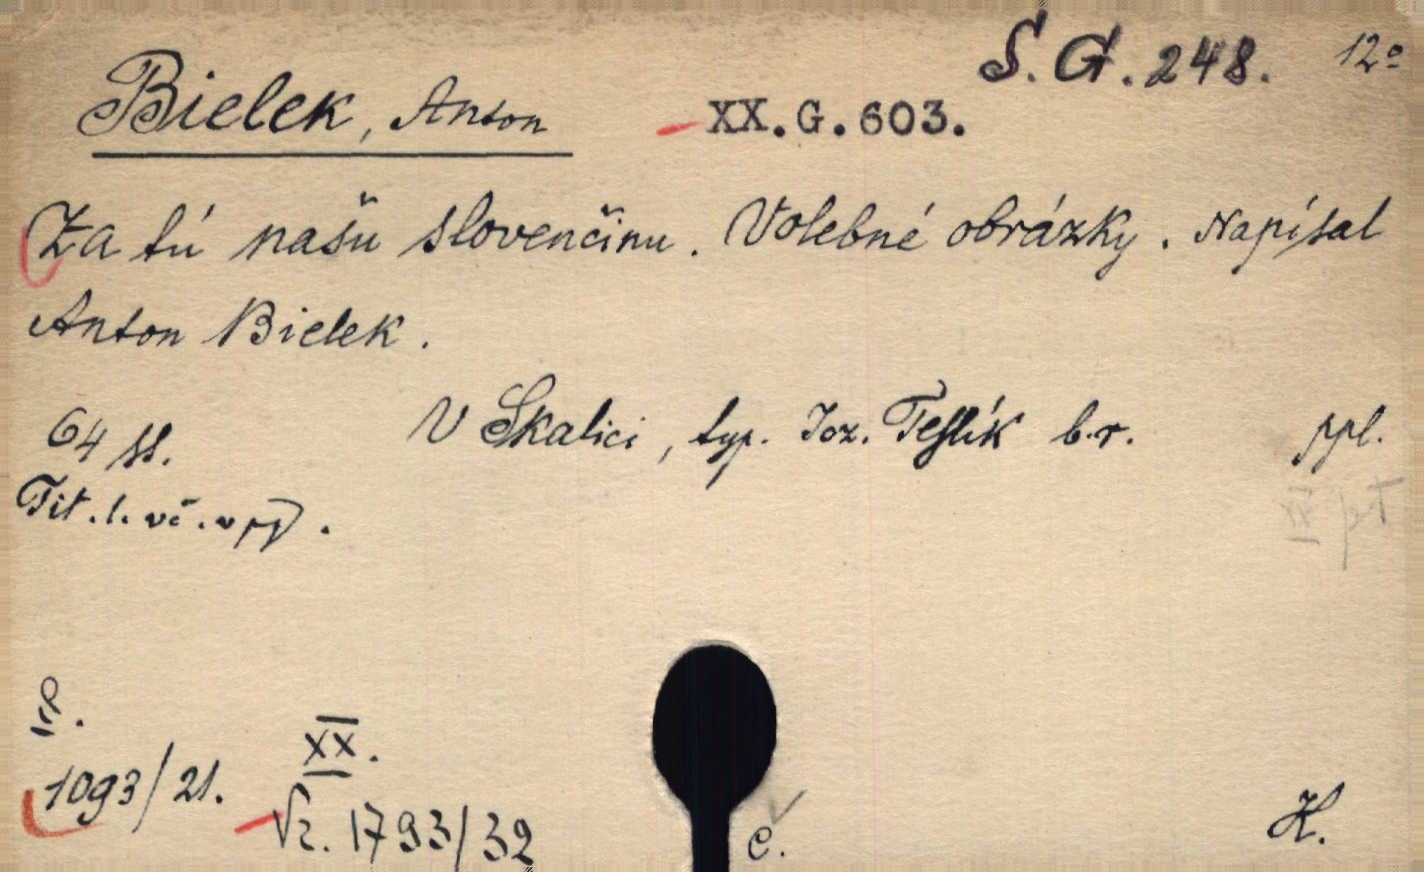 S. G. 248. 12º
Bielek, Anton XX.G.603.
Za tú našu slovenčinu. Volebné obrázky. Napísal
Anton Bielek.
64 ss. V Skalici, typ. Joz. Teslík b.r. ppl.
Tit. l. vč. v pg.
XX.
1093/21.
1793/32
c. H.